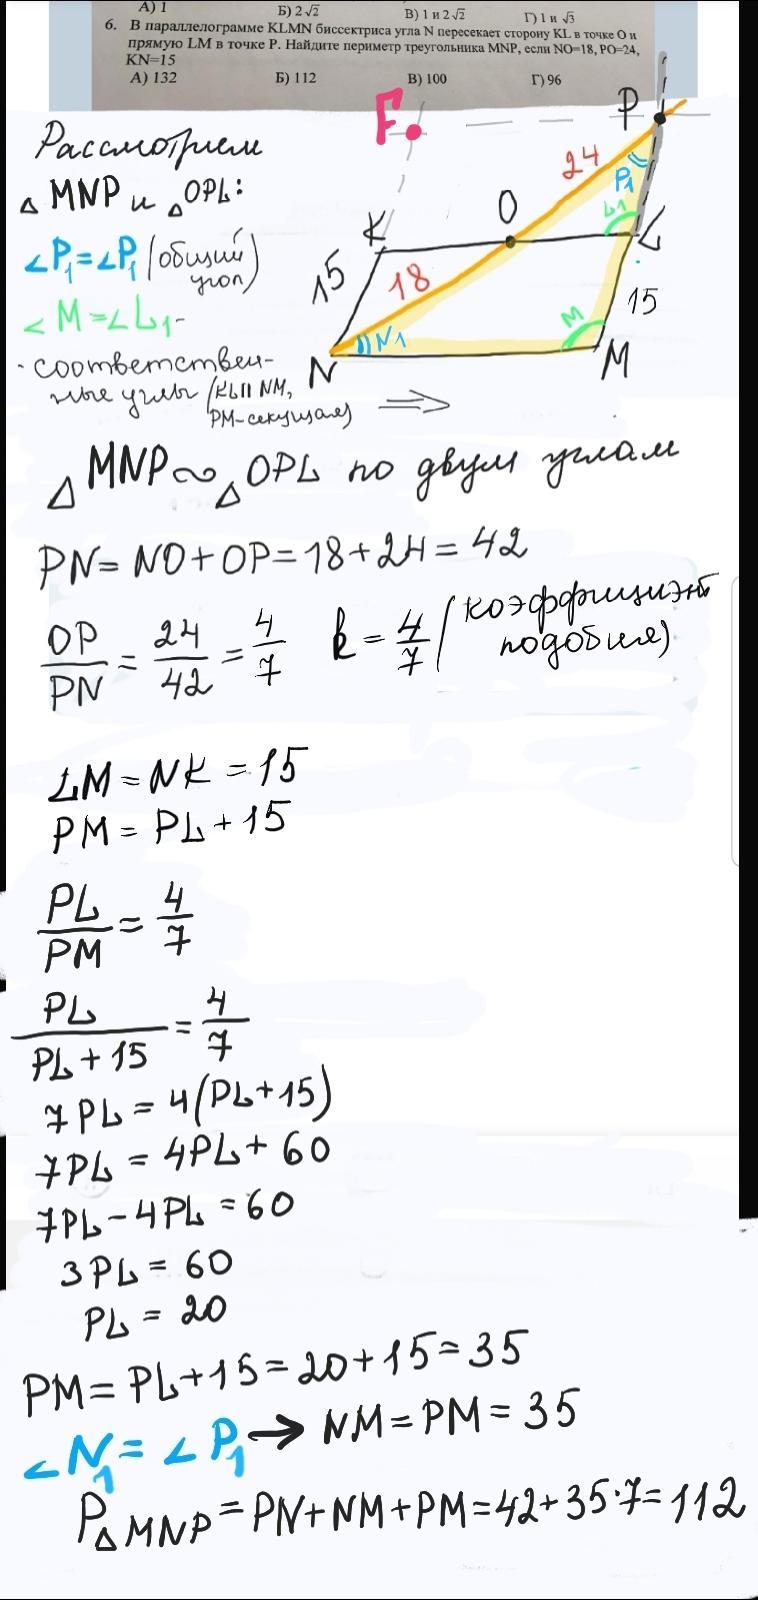 А) 1 Б) 2√2 В) 1 и 2√2 Г) 1 и √3
6. В параллелограмме KLMN биссектриса угла N пересекает сторону KL в точке O и
прямую LM в точке P. Найдите периметр треугольника MNP, если NO=18, PO=24,
KN=15
А) 132 Б) 112 В) 100 Г) 96
F.
P
Рассмотрим
24
△MNP и △OPL:
P1
O
L1
K
L
∠P1=∠P1 (общий
угол)
15
18
15
∠M=∠L1-
M
N1
N
M
- соответствен-
ные углы (KL II NM,
PM-секущая) ⟹
△MNP∾△OPL по двум углам
PN=NO+OP=18+24=42
OP/PN = 24/42 = 4/7 k = 4/7 (коэффициент
подобия)
LM=NK=15
PM=PL+15
PL/PM = 4/7
PL/PL+15 = 4/7
7PL=4(PL+15)
7PL=4PL+60
7PL-4PL=60
3PL=60
PL=20
PM=PL+15=20+15=35
∠N1=∠P1→ NM=PM=35
P△MNP=PN+NM+PM=42+35·7=112